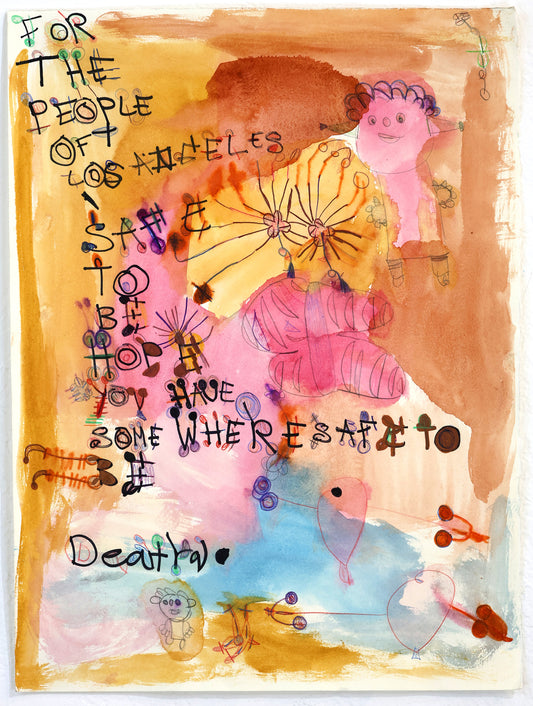 FOR
THE
PEOPLE
OF
LOS ANGELES
SAFE
TO
BE
HOPE
YOU HAVE
SOMEWHERE SAFE TO
BE